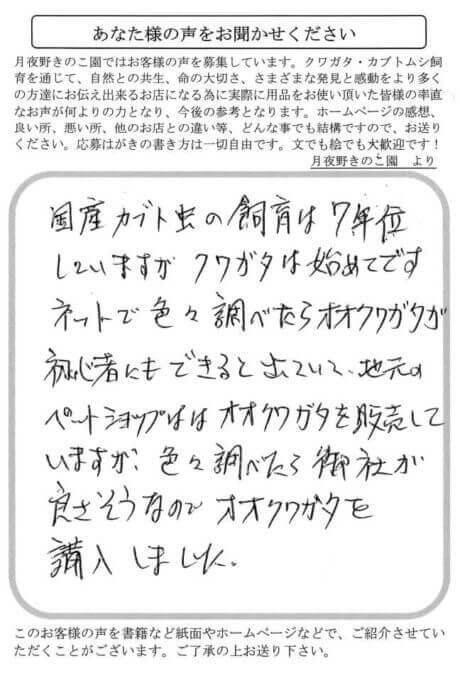 あなた様の声をお聞かせください
月夜野きのこ園ではお客様の声を募集しています。クワガタ・カブトムシ飼
育を通じて、自然との共生、命の大切さ、さまざまな発見と感動をより多く
の方達にお伝え出来るお店になる為に実際に用品をお使い頂いた皆様の率直
なお声が何よりの力となり、今後の参考となります。ホームページの感想、
良い所、悪い所、他のお店との違い等、どんな事でも結構ですので、お送り
ください。応募はがきの書き方は一切自由です。文でも絵でも大歓迎です！
月夜野きのこ園　より
国産カブト虫の飼育は7年位
していますが クワガタは始めてです
ネットで色々調べたらオオクワガタが
初心者にもできると出ていて、地元の
ペットショップはは オオクワガタを販売して
いますが、色々調べたら御社が
良さそうなので オオクワガタを
購入しました。
このお客様の声を書籍など紙面やホームページなどで、ご紹介させてい
ただくことがございます。ご了承の上お送り下さい。